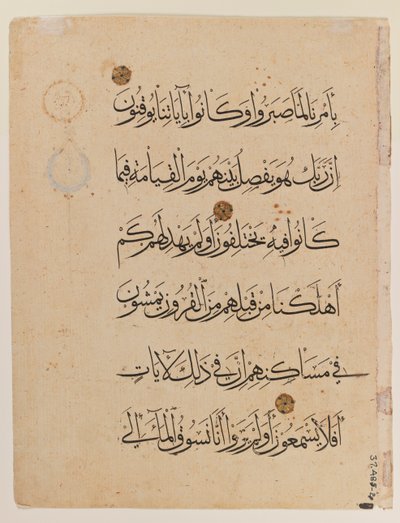 بِأَمْرِنَا لَمَّا صَبَرُوا وَكَانُوا بِآيَاتِنَا يُوقِنُونَ
إِنَّ رَبَّكَ هُوَ يَفْصِلُ بَيْنَهُمْ يَوْمَ الْقِيَامَةِ فِيمَا
كَانُوا فِيهِ يَخْتَلِفُونَ أَوَلَمْ يَهْدِ لَهُمْ كَمْ
أَهْلَكْنَا مِنْ قَبْلِهِمْ مِنَ الْقُرُونِ يَمْشُونَ
فِي مَسَاكِنِهِمْ إِنَّ فِي ذَلِكَ لَآيَاتٍ
أَفَلَا يَسْمَعُونَ أَوَلَمْ يَرَوْا أَنَّا نَسُوقُ الْمَاءَ إِلَى